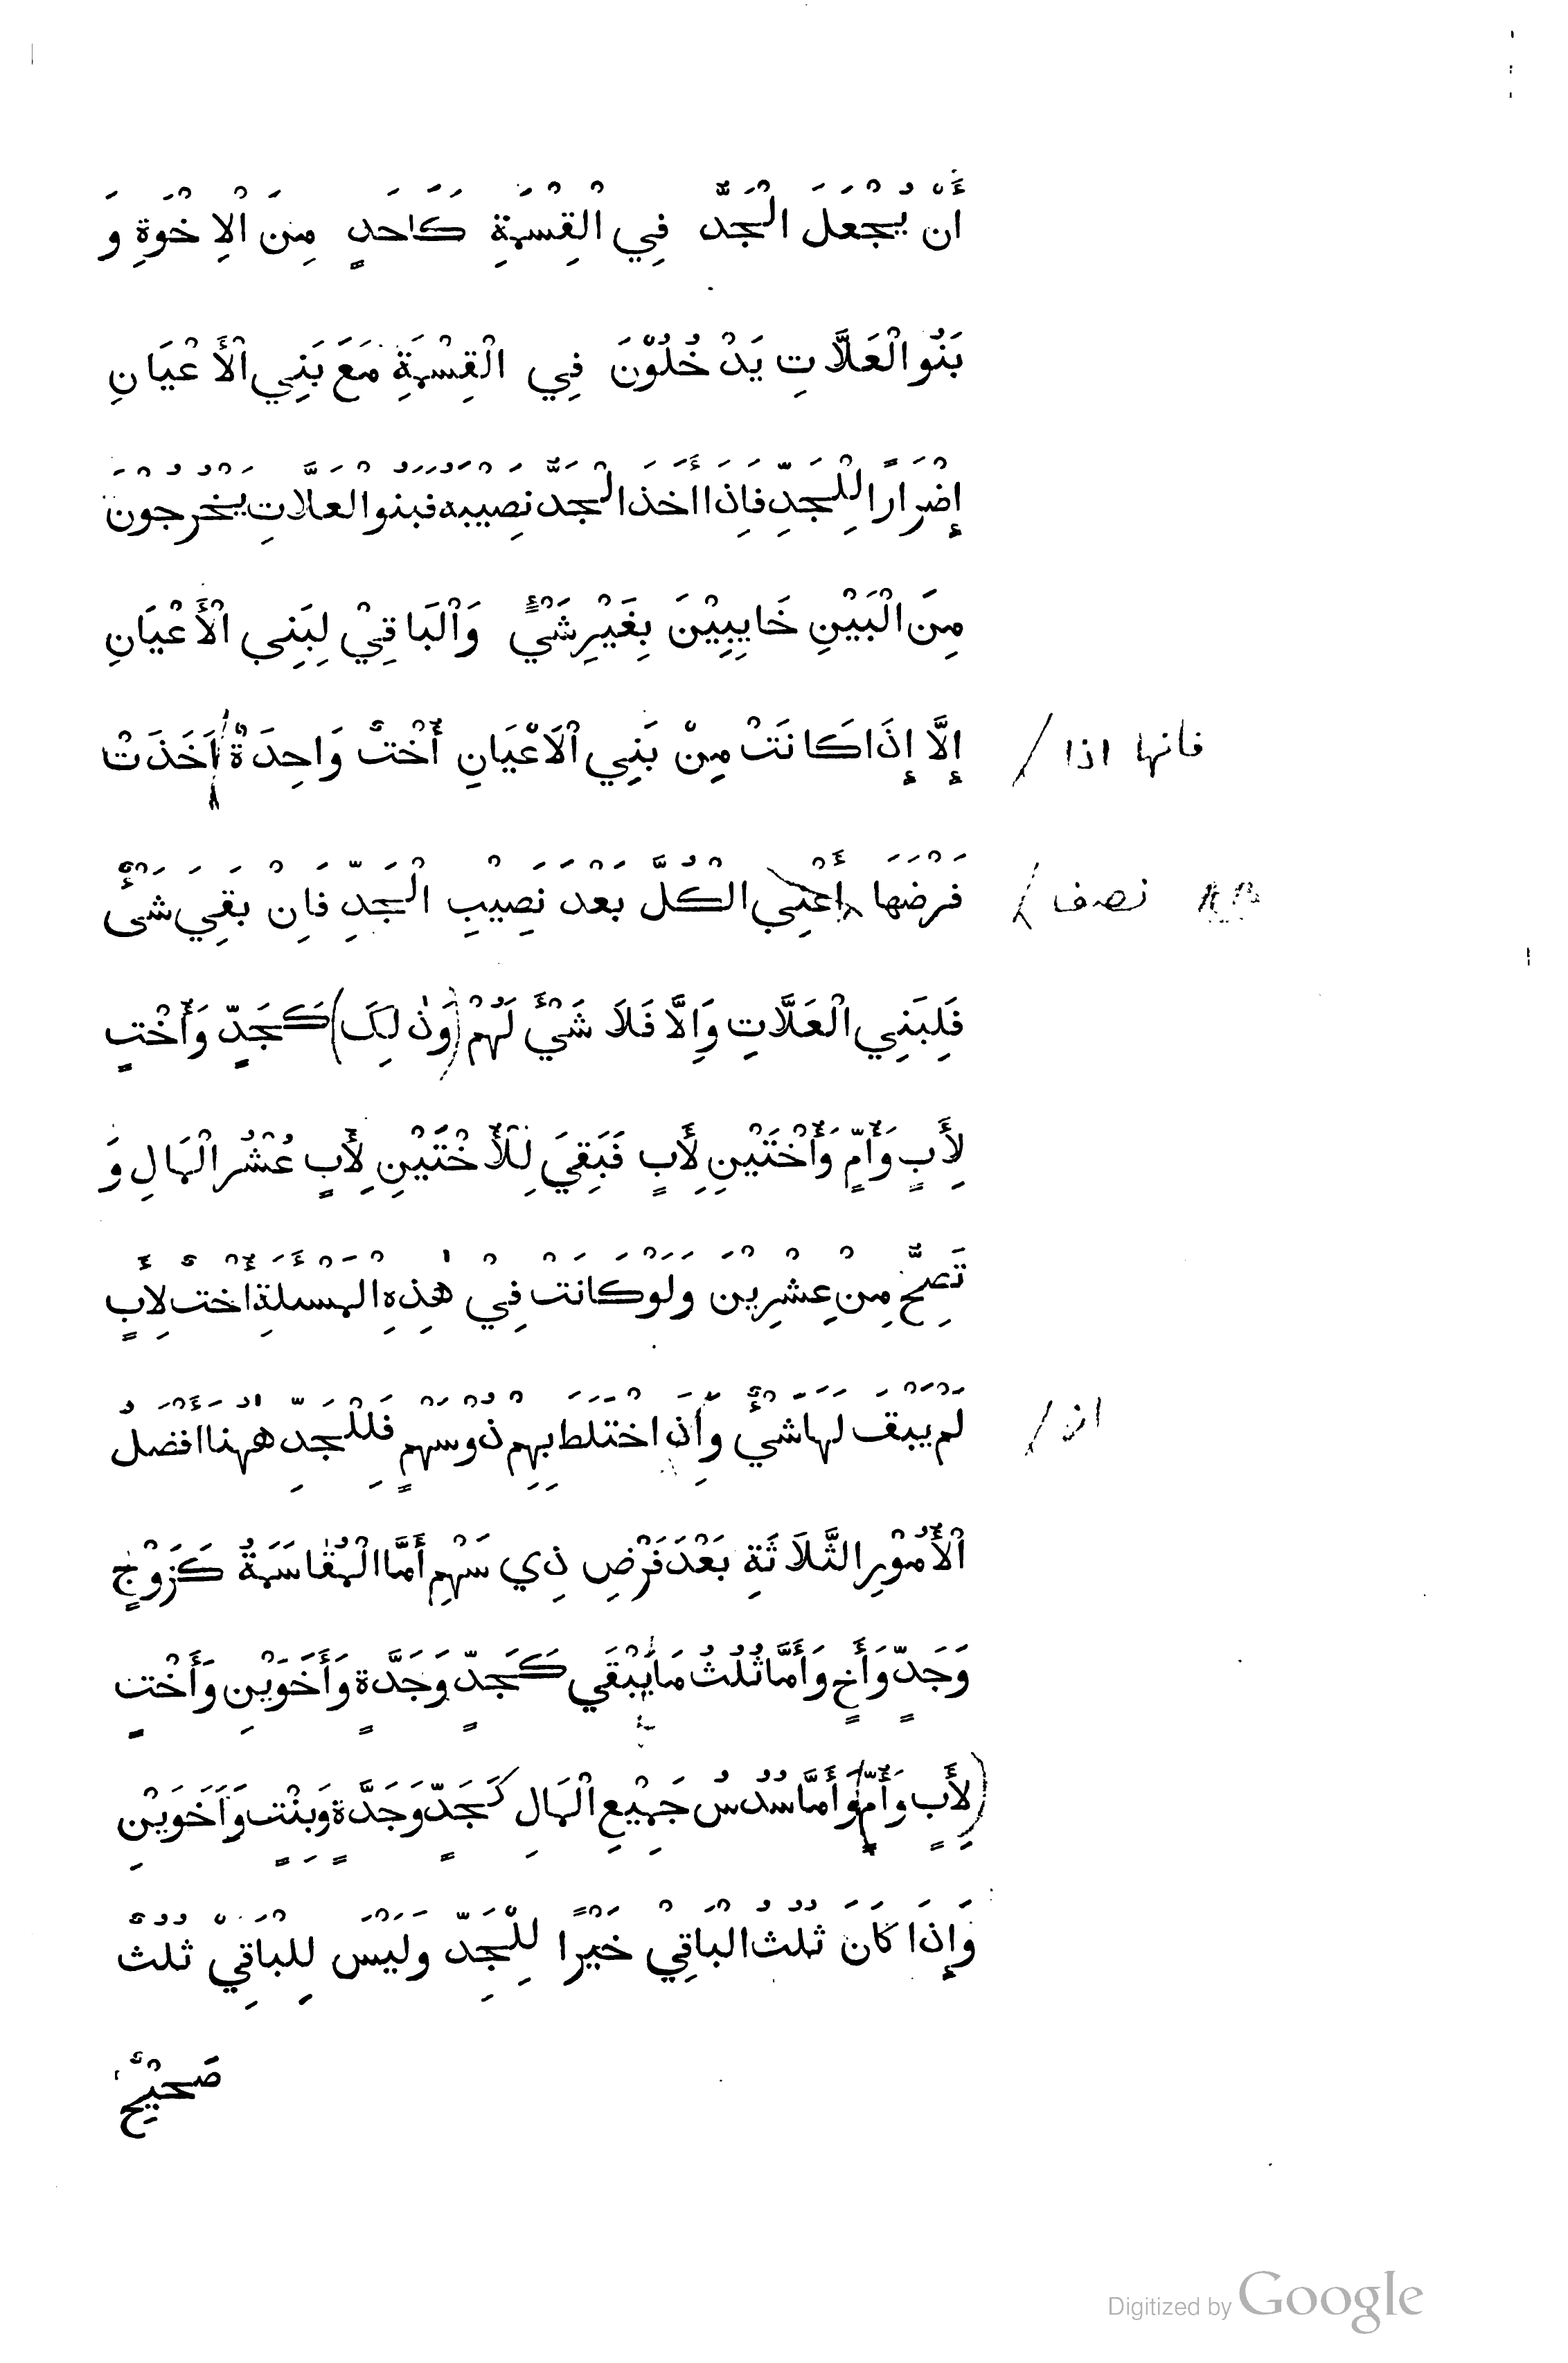 أَنْ يُجْعَلَ الْجَدُّ فِي الْقِسْمَةِ كَاحَدٍ مِنَ الْاِخْوَةِ وَ
بَنُو الْعَلَّاتِ يَدْخُلُوْنَ فِي الْقِسْمَةِ مَعَ بَنِي الْأَعْيَانِ
إِضْرَارًا لِلْجَدِّ فَاِذَا اَخَذَ الْجَدُّ نَصِيْبَهُ فَبَنُو الْعَلَّاتِ يَخْرُجُوْنَ
مِنَ الْبَيْنِ خَايِبِيْنَ بِغَيْرِ شَيْءٍ وَالْبَاقِيْ لِبَنِي الْأَعْيَانِ
إِلَّا إِذَا كَانَتْ مِنْ بَنِي الْاَعْيَانِ أُخْتٌ وَاحِدَةٌ اَخَذَتْ / فانها اذا
فَرْضَهَا أَعْنِي الْكُلَّ بَعْدَ نَصِيْبِ الْجَدِّ فَاِنْ بَقِيَ شَيْءٌ / نصف
فَلِبَنِي الْعَلَّاتِ وَاِلَّا فَلَا شَيْءَ لَهُمْ (وَذٰلِكَ) كَجَدٍّ وَأُخْتٍ
لِأَبٍ وَأُمٍّ وَأُخْتَيْنِ لِأَبٍ فَبَقِيَ لِلْأُخْتَيْنِ لِأَبٍ عُشْرُ الْمَالِ وَ
تَصِحُّ مِنْ عِشْرِيْنَ وَلَوْ كَانَتْ فِيْ هٰذِهِ الْمَسْئَلَةِ أُخْتٌ لِأَبٍ
لَمْ يَبْقَ لَهَا شَيْءٌ وَاِنْ اخْتَلَطَ بِهِمْ ذُوْ سَهْمٍ فَلِلْجَدِّ هٰهُنَا أَفْضَلُ / اذ
الْأُمُوْرِ الثَّلَاثَةِ بَعْدَ فَرْضِ ذِي سَهْمٍ أَمَّا الْمُقَاسَمَةُ كَزَوْجٍ
وَجَدٍّ وَأَخٍ وَأَمَّا ثُلُثُ مَا يَبْقَي كَجَدٍّ وَجَدَّةٍ وَأَخَوَيْنِ وَأُخْتٍ
(لِأَبٍ وَأُمٍّ) وَأَمَّا سُدُسُ جَمِيْعِ الْمَالِ كَجَدٍّ وَجَدَّةٍ وَبِنْتٍ وَأَخَوَيْنِ
وَإِذَا كَانَ ثُلُثُ الْبَاقِيْ خَيْرًا لِلْجَدِّ وَلَيْسَ لِلْبَاقِيْ ثُلُثٌ
صَحِيْحٌ
Digitized by Google